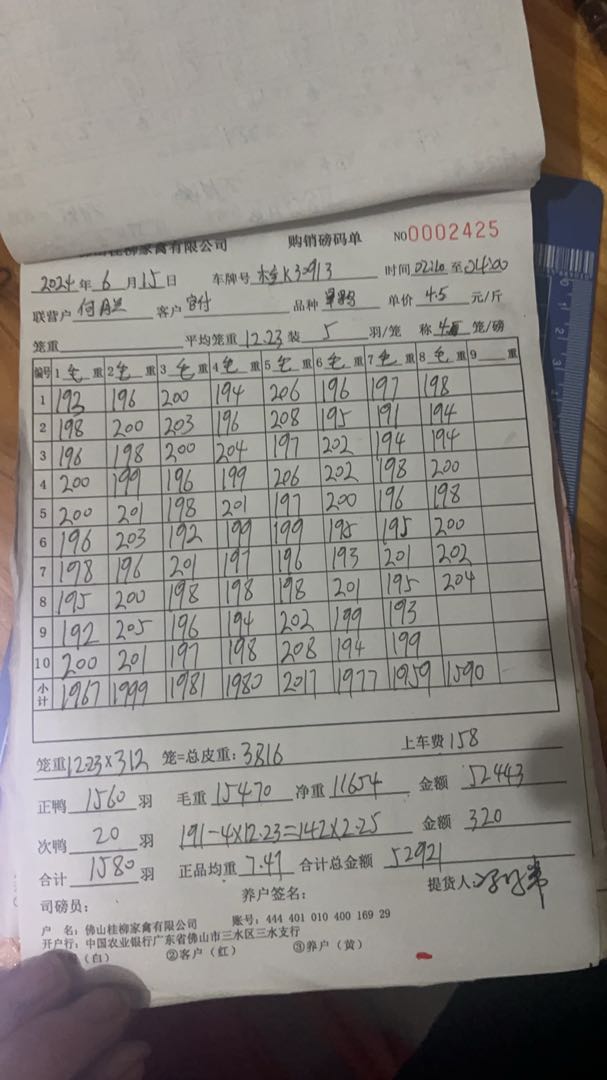 桂柳家禽有限公司 购销磅码单 NO0002425
2024年6月15日 车牌号 桂K30913 时间 02:20 至 04:00
联营户 何 客户 官付 品种 单价 4.5 元/斤
笼重 平均笼重 12.23 装 5 羽/笼 称 4 笼/磅
编号 1 毛 重 2 毛 重 3 毛 重 4 毛 重 5 毛 重 6 毛 重 7 毛 重 8 毛 重 9 重
1 193 196 200 194 206 196 197 198
2 198 200 203 196 208 195 191 194
3 196 198 200 204 197 202 194 194
4 200 199 196 199 206 202 198 200
5 200 201 198 201 197 200 196 198
6 196 203 192 199 199 195 195 200
7 198 196 201 197 196 193 201 202
8 195 200 198 198 198 201 195 204
9 192 205 196 194 202 199 193
10 200 201 197 198 208 194 199
小计 1967 1999 1981 1980 2017 1977 1959 1590
笼重 12.23×312 笼=总皮重: 3816 上车费 158
正鸭 1560 羽 毛重 15470 净重 11654 金额 52443
次鸭 20 羽 191-4×12.23=142×2.25 金额 320
合计 1580 羽 正品均重 7.47 合计总金额 52921
司磅员: 养户签名: 提货人:
户 名: 佛山桂柳家禽有限公司 账号: 444 401 010 400 169 29
开户行: 中国农业银行广东省佛山市三水区三水支行
(白) ②客户(红) ③养户(黄)